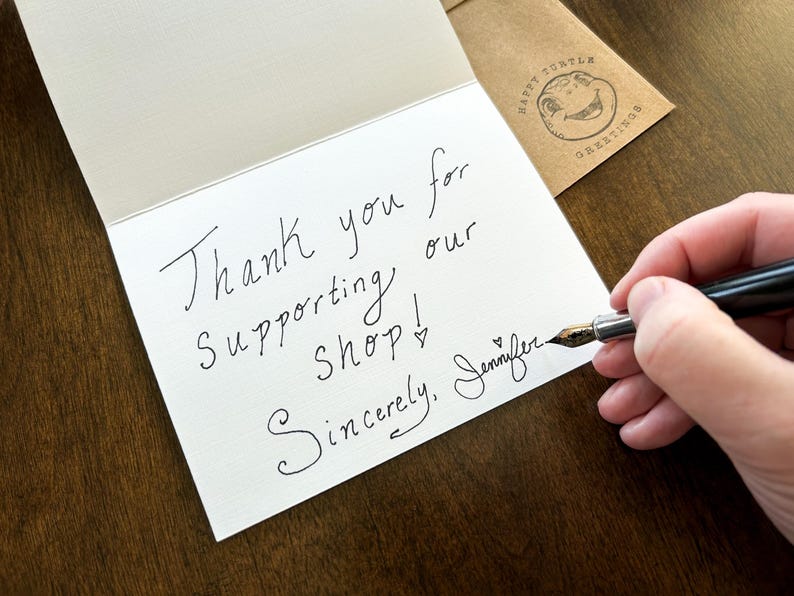 HAPPY TURTLE
GREETINGS
Thank you for
supporting our
shop!
Sincerely, Jennifer